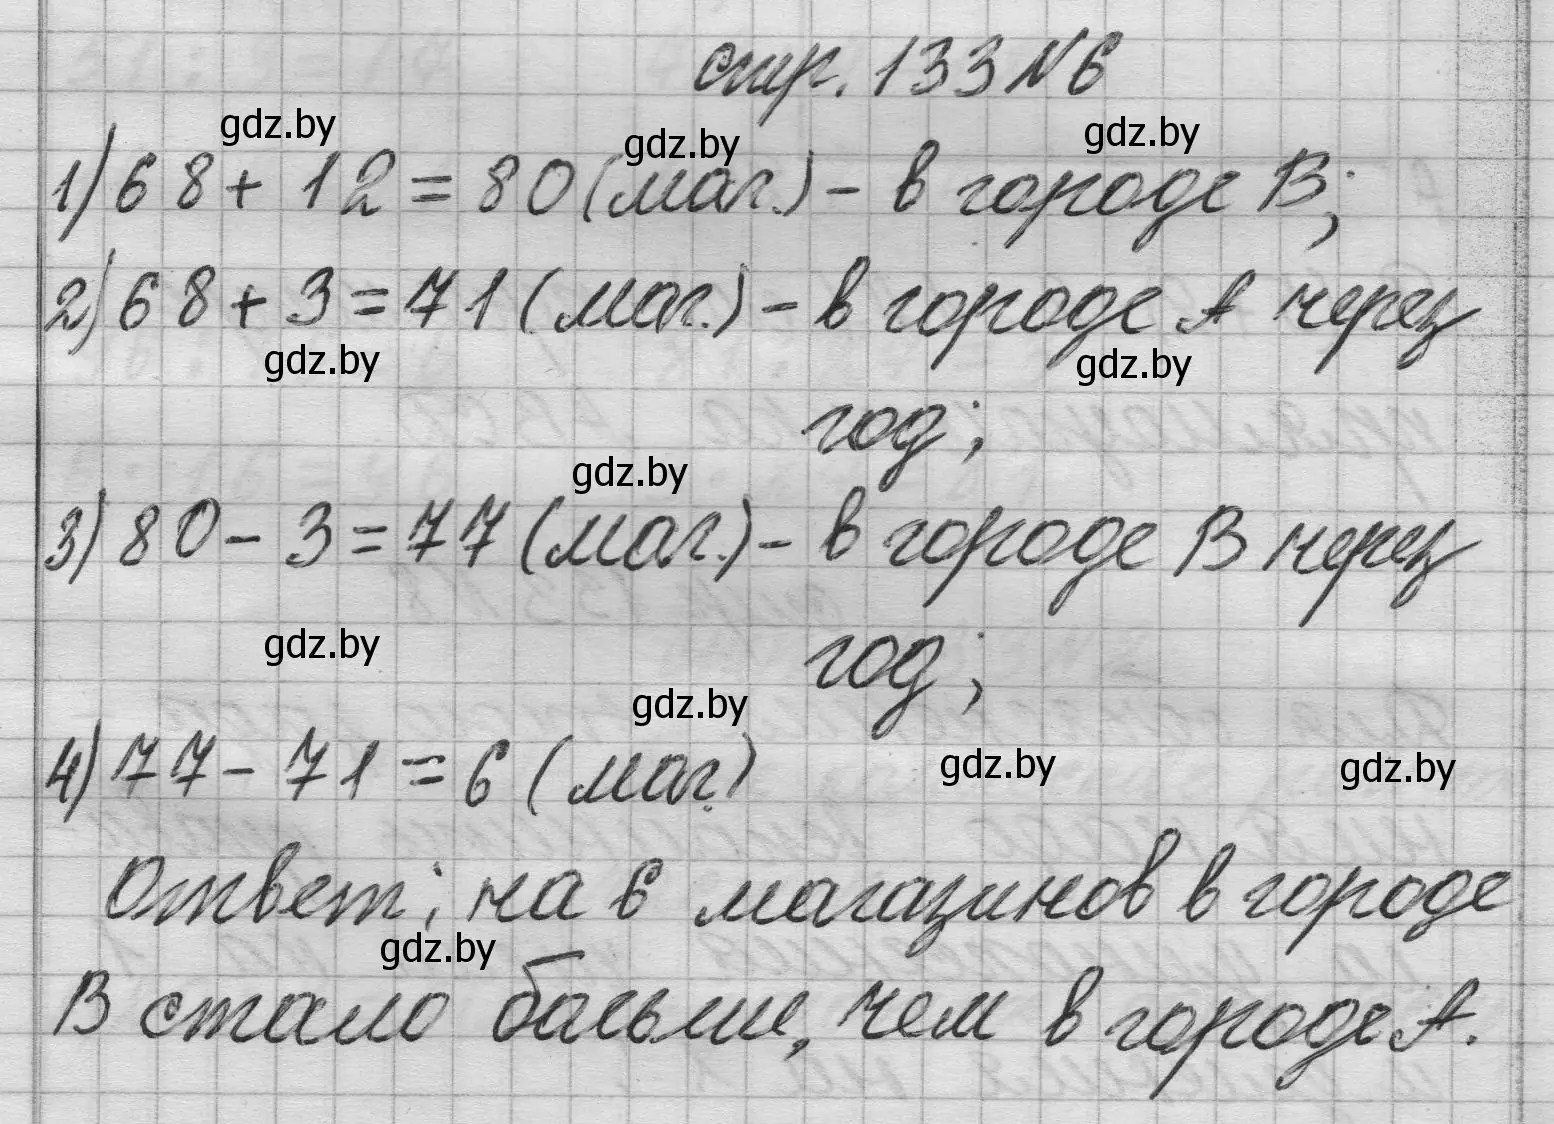 стр. 133 №6
gdz.by gdz.by gdz.by
1) 68 + 12 = 80 (маг.) - в городе В;
2) 68 + 3 = 71 (маг.) - в городе А через
gdz.by gdz.by
год;
gdz.by
3) 80 - 3 = 77 (маг.) - в городе В через
gdz.by
год;
gdz.by
4) 77 - 71 = 6 (маг.)
gdz.by gdz.by
Ответ: на 6 магазинов в городе
gdz.by
В стало больше, чем в городе А.